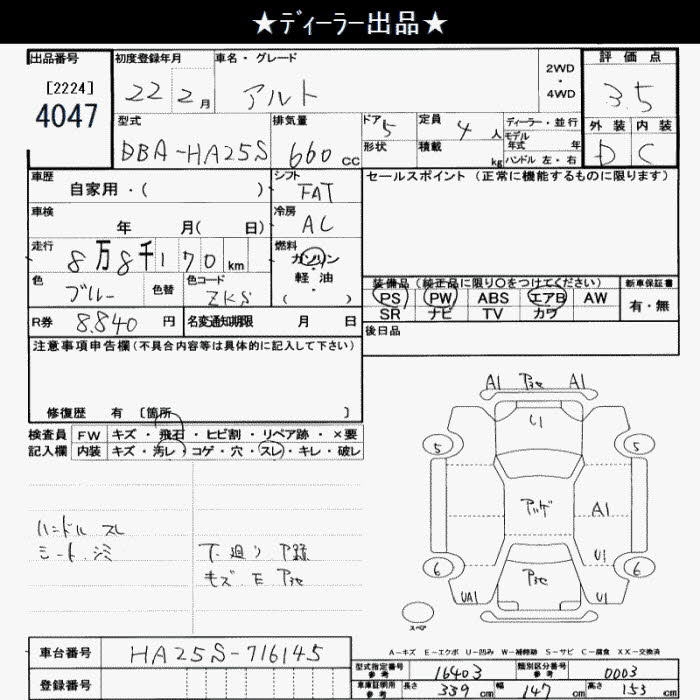 ★ディーラー出品★
出品番号 初度登録年月 車名・グレード 2WD・4WD 評価点
[2224]
4047
22 2月 アルト 3.5
型式 排気量 ドア 定員 ディーラー・並行 外装 内装
DBA-HA25S 660cc 5 4人 モデル年式 年 D C
形状 積載 kg ハンドル 左・右
車歴 シフト セールスポイント(正常に機能するものに限ります)
自家用・( ) FAT
車検 冷房
年 月( 日) AC
走行 燃料
8万8千170km ガソリン・軽油( )
色 色替 色コード 装備品(純正品に限り〇をつけてください) 新車保証書
ブルー ZKS PS PW ABS エアB AW 有・無
SR ナビ TV カワ
R券 8,840円 名変通知期限 月 日 後日品
注意事項申告欄(不具合内容等は具体的に記入して下さい)
修復歴 有[箇所 ]
検査員 FW キズ・飛石・ヒビ割・リペア跡・×要
記入欄 内装 キズ・汚レ・コゲ・穴・スレ・キレ・破レ
ハンドル スレ
シート シミ
下廻り
キズ E
A1 A1
U1
5 5
A1
U1
6 6
UA1 U1
スペア
A-キズ E-エクボ U-凹み W-補修跡 S-サビ C-腐食 XX-交換済
車台番号 HA25S-716145
型式指定番号 参考 16403 類別区分番号 参考 0003
登録番号
車庫証明用 参考 長さ 339cm 幅 147cm 高さ 153cm